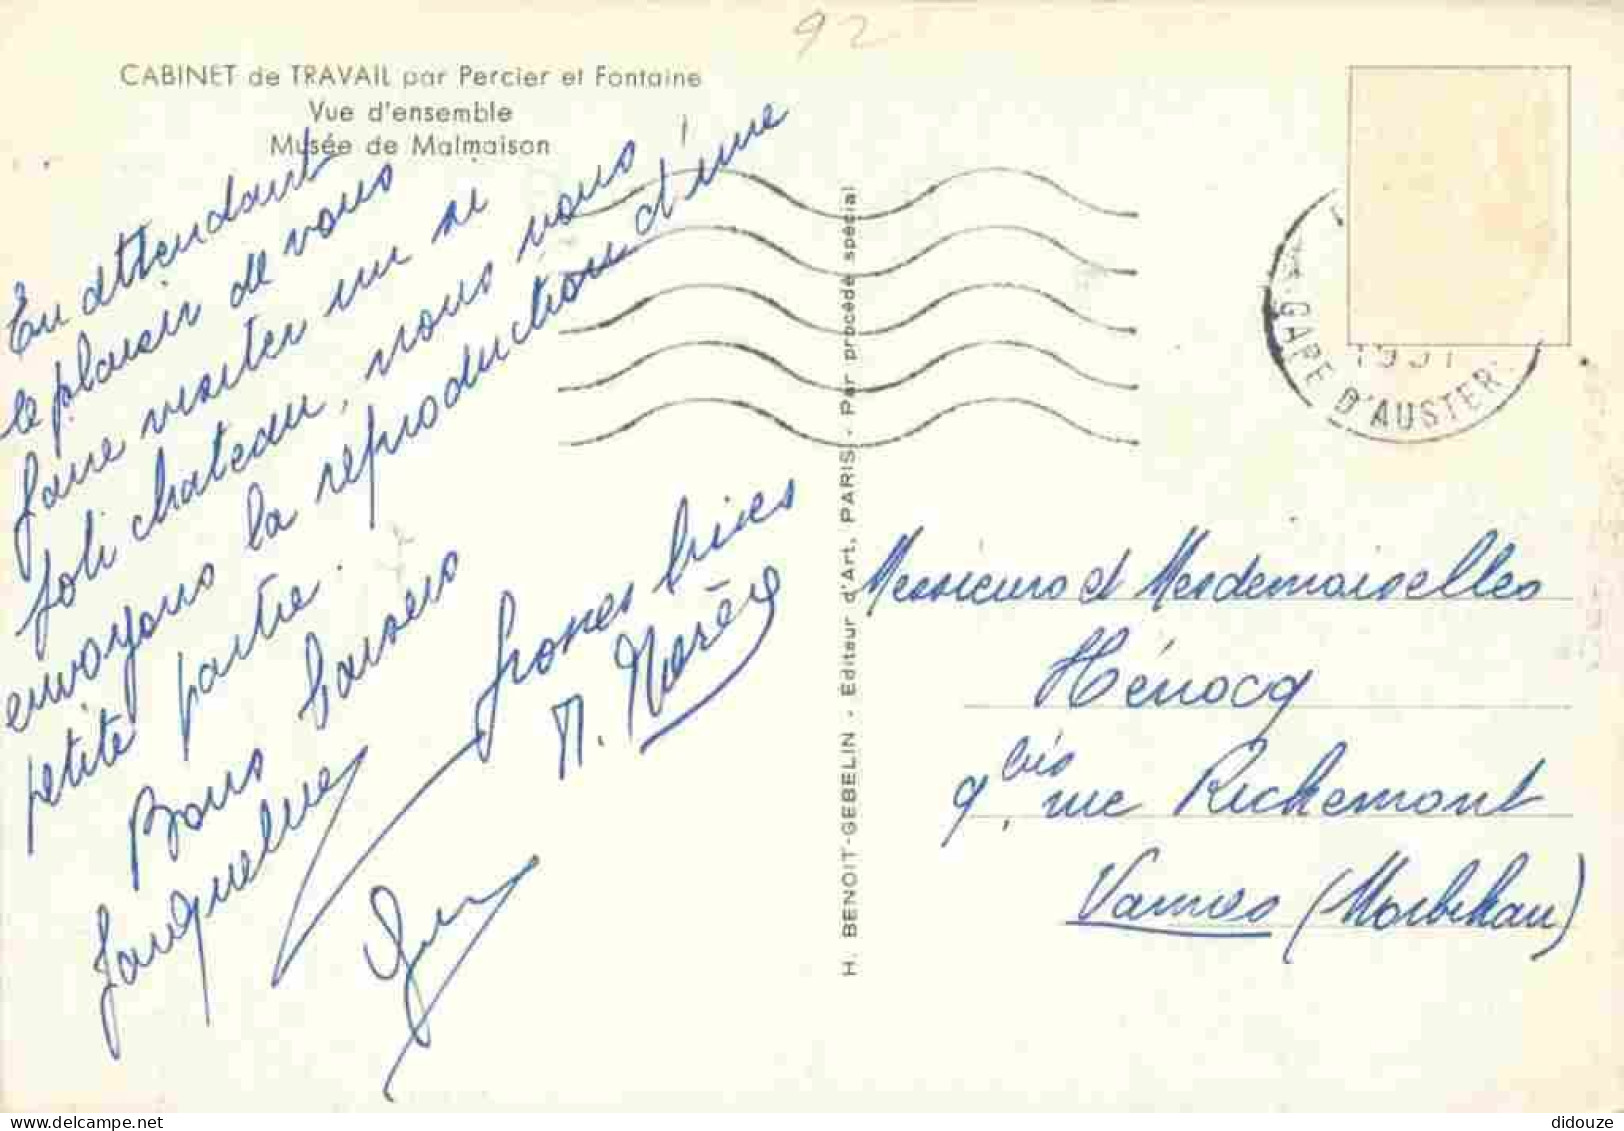 92
CABINET de TRAVAIL par Percier et Fontaine
Vue d'ensemble
Musée de Malmaison
En attendant
le plaisir de vous
faire visiter un si
joli chateau, nous vous
envoyons la reproduction d'une
petite partie.
Bons baisers
Jacqueline
grosses bises
M.
H. BENOIT-GEBELIN - Editeur d'Art, PARIS - Par procédé spécial
GARE D'AUSTER
1951
Messieurs et Mesdemoiselles
Hénocq
9 bis, rue Richemont
Vannes (Morbihan)
didouze